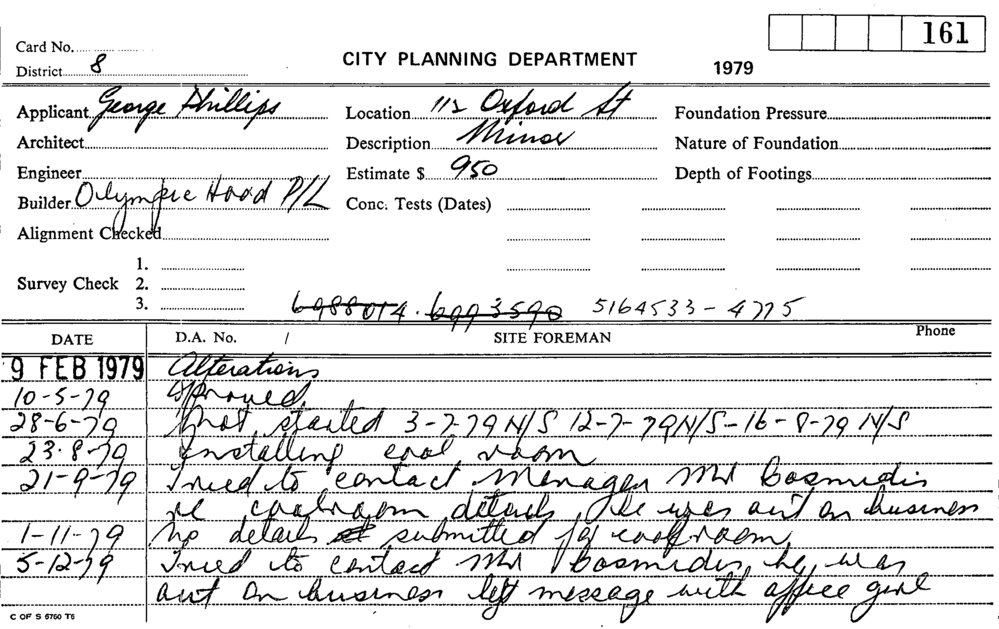 161
Card No.
District 8
CITY PLANNING DEPARTMENT
1979
Applicant George Phillips
Location 112 Oxford St
Foundation Pressure
Architect
Description Minor
Nature of Foundation
Engineer
Estimate $ 950
Depth of Footings
Builder Olympic Hood P/L
Conc. Tests (Dates)
Alignment Checked
Survey Check
1.
2.
3.
6988014. 6993590 5164533-4775
DATE
D.A. No. /
SITE FOREMAN
Phone
9 FEB 1979 Alterations
10-5-79 Approved
28-6-79 Not started 3-7-79 N/S 12-7-79 N/S-16-8-79 N/S
23.8-79 Installing cool room
21-9-79 Tried to contact Manager Mr Cosmidis
re coolroom details he was out on business
1-11-79 No details submitted for coolroom
5-12-79 Tried to contact Mr Cosmidis, he was
out on business left message with office girl
C OF S 5750 T5